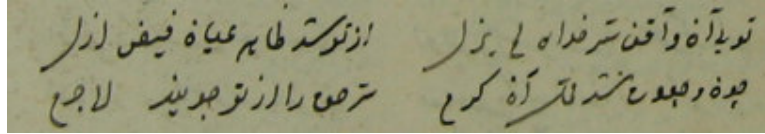 تویی آن واقف سر خدای لم یزل از تو شد ظاهر عیان فیض ازل
چون وجودت شد آن کرم سر حق را از تو جویند لاجرم